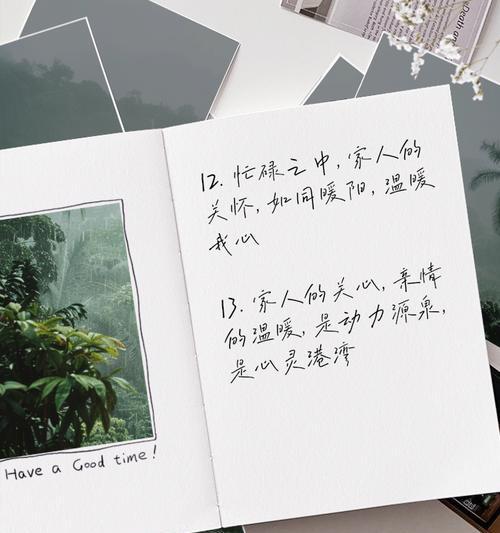 Death an
12. 忙碌之中，家人的
关怀，如同暖阳，温暖
我心
13. 家人的关心，亲情
的温暖，是动力源泉，
是心灵港湾
Have a Good time!